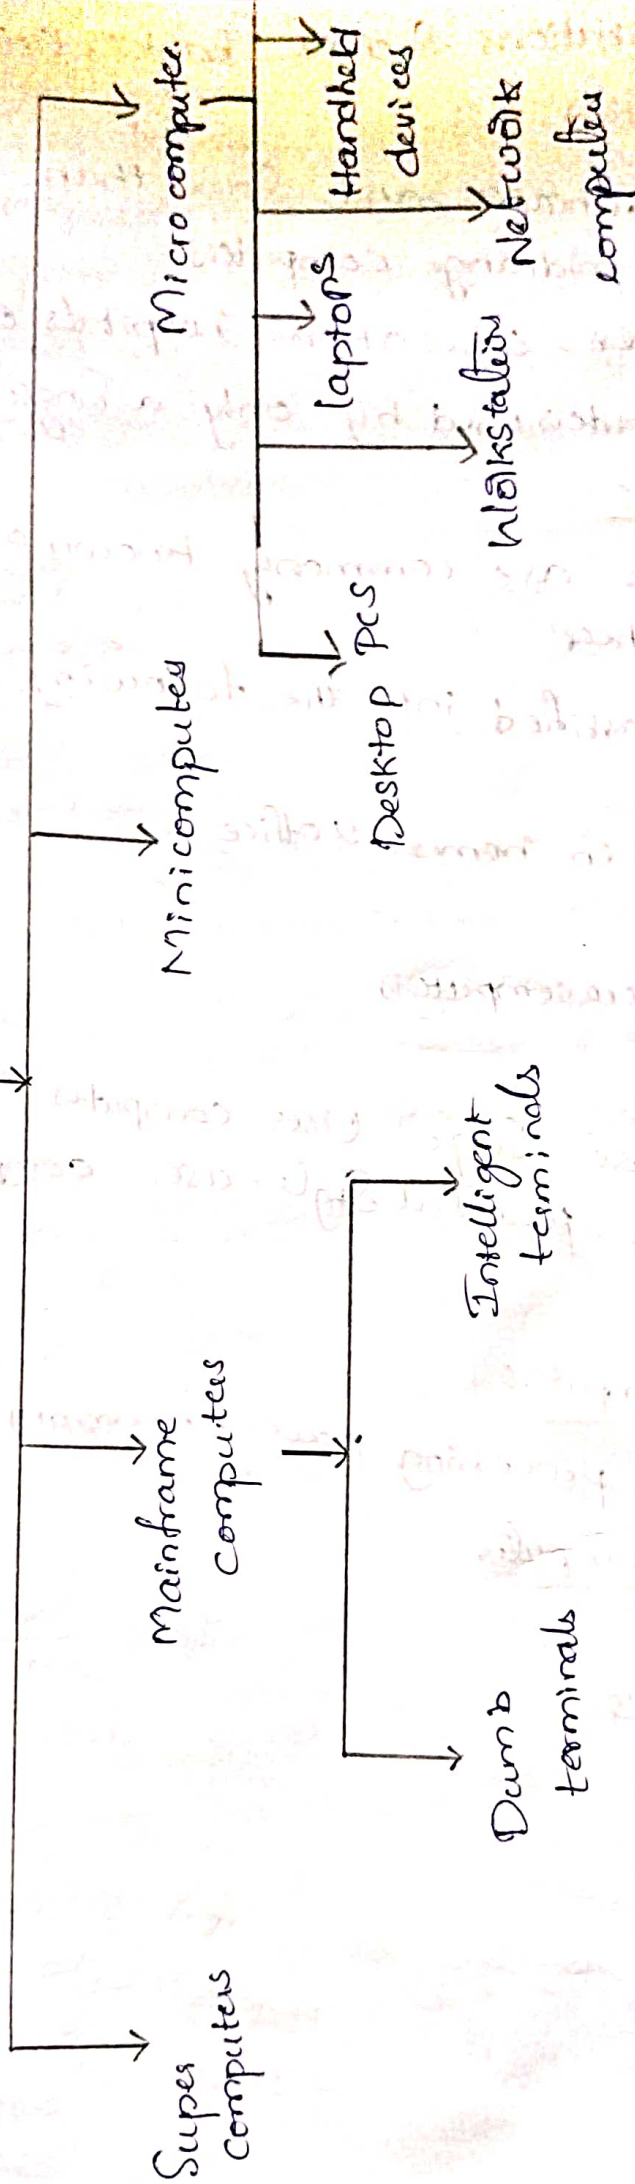 Super
computers
Mainframe
computers
Minicomputers
Micro computer
Dumb
terminals
Intelligent
terminals
Desktop PCS
Workstations
laptops
Network
computers
Handheld
devices